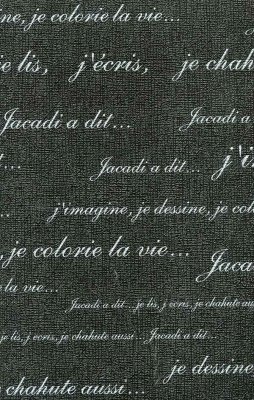 ine, je colorie la vie...
e lis, j'écris, je chahute
Jacadi a dit...
Jacadi a
Jacadi a dit... j'i
...
j'imagine, je dessine, je colo
, je colorie la vie...
Jacad
la vie...
Jacadi a dit... je lis, j ecris, je chahute aussi
e lis, j ecris, je chahute aussi... Jacadi a dit...
je dessine,
e chahute aussi...